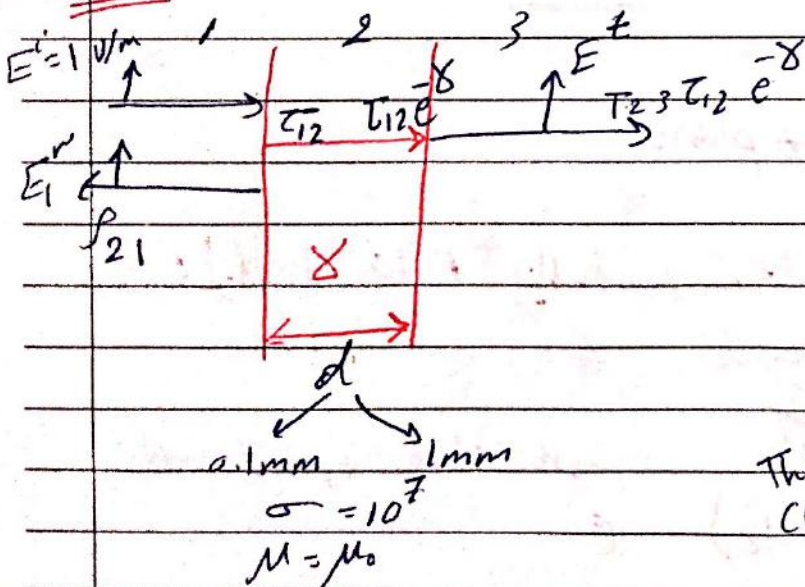 1 2 3
E^i = 1 V/m E^t
τ₁₂ τ₁₂ e^-γ τ₂₃ τ₁₂ e^-γ
E₁^r
ρ₂₁
γ
d
0.1mm 1mm
σ = 10^7
μ = μ₀